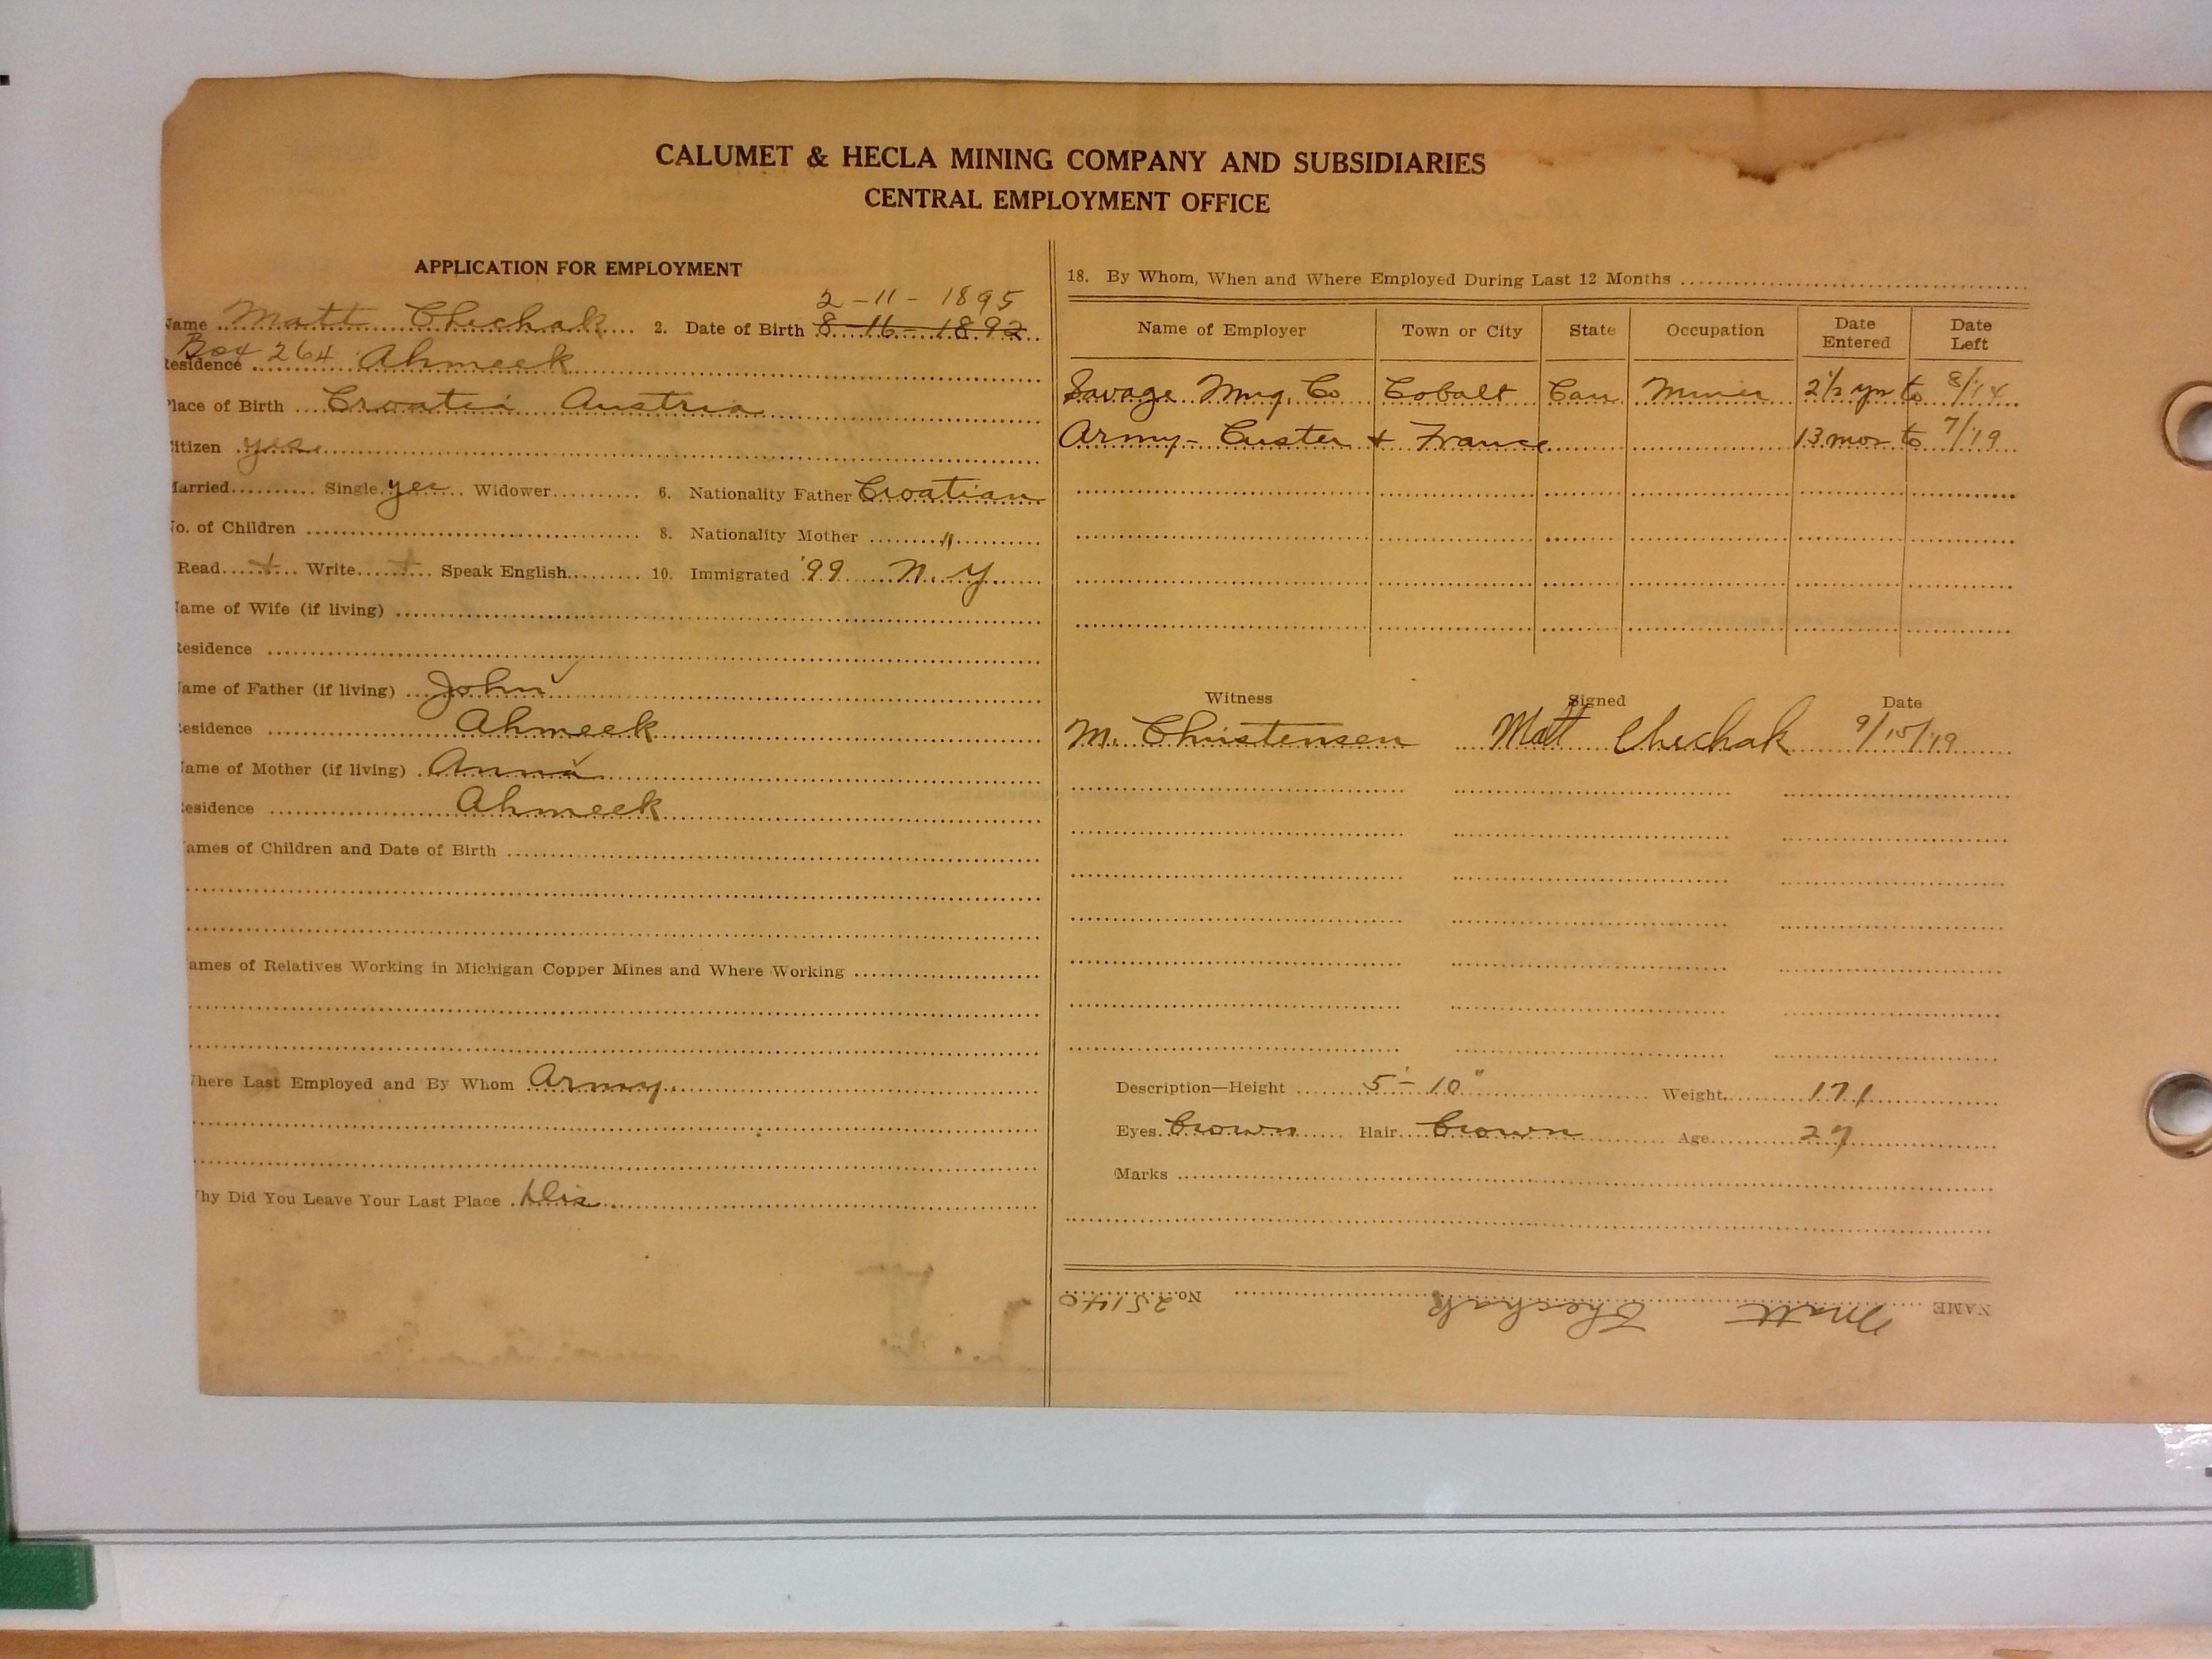 CALUMET & HECLA MINING COMPANY AND SUBSIDIARIES
CENTRAL EMPLOYMENT OFFICE
APPLICATION FOR EMPLOYMENT
2-11-1895
Name Matt Chechak 2. Date of Birth 8-16-1892
Box 264 Ahmeek
Residence
Place of Birth Croatia Austria
Citizen yes
Married Single yes Widower 6. Nationality Father Croatian
No. of Children 8. Nationality Mother "
Read + Write + Speak English 10. Immigrated '99 N.Y
Name of Wife (if living)
Residence
Name of Father (if living) John
Residence Ahmeek
Name of Mother (if living) Anna
Residence Ahmeek
Names of Children and Date of Birth
Names of Relatives Working in Michigan Copper Mines and Where Working
Where Last Employed and By Whom Army
Why Did You Leave Your Last Place Dis
18. By Whom, When and Where Employed During Last 12 Months
Name of Employer Town or City State Occupation Date Entered Date Left
Savage Mng. Co Cobalt Can Miner 2 1/2 yrs to 8/14
Army - Custer + France 13 mos to 7/19
Witness Signed Date
M. Christensen Matt Chechak 9/15/19
Description—Height 5'-10" Weight 171
Eyes Brown Hair Brown Age 27
Marks
NAME Matt Chechak No. 25140